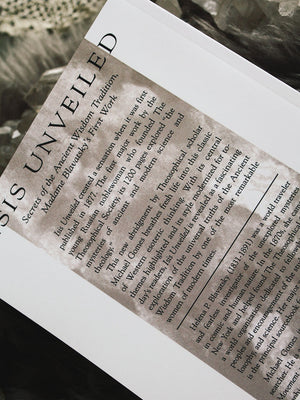 SIS UNVEILED
Secrets of the Ancient Wisdom Tradition,
Madame Blavatsky's First Work
Isis Unveiled caused a sensation when it was first
published in 1877. The first major work by the
young Russian noblewoman who founded The
Theosophical Society, its 1200 pages explored "the
mysteries of ancient and modern science and
theology."
This new abridgment by Theosophical scholar
Michael Gomes breathes fresh life into this classic
of Western esoteric thinking. With its central
themes highlighted and its style modernized for to-
day's readers, Isis Unveiled is revealed as a fascinating
exploration of the universal truths of the Ancient
Wisdom Tradition by one of the most remarkable
women of modern
Helena P. Blavatsky (1831-1891) was a world traveler
and fearless
New York and helped found The
a world
is the principal source
Michael